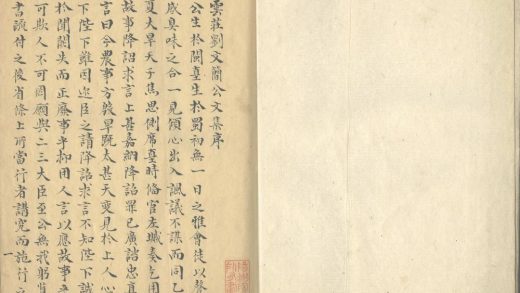 雲莊劉文簡公文集序
公生於閩臺生於蜀初無一日之雅會徒以聲
感臭味之合一見傾心出入諷議不謀而同乙
夏大旱天子焦思側席臺時偹官左城奏乞用
故事降詔求言上甚嘉納降詔罪己廣諮忠直
言曰今農事方殷旱旣太甚天變見於上人心
下陛下雖因迩臣之請降詔求言不知陛下誠
於聞闕失而正厥事乎抑用人言以應故事
可欺人不可罔願與二三大臣至公無我躬
書疏付之後省條上所當行者講究而施行之
一